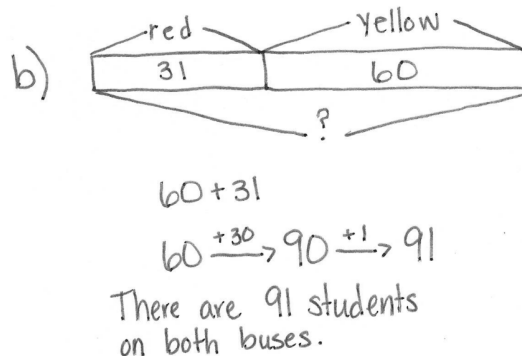 red yellow
b) 31 60
?
60 + 31
60 +30→ 90 +1→ 91
There are 91 students
on both buses.